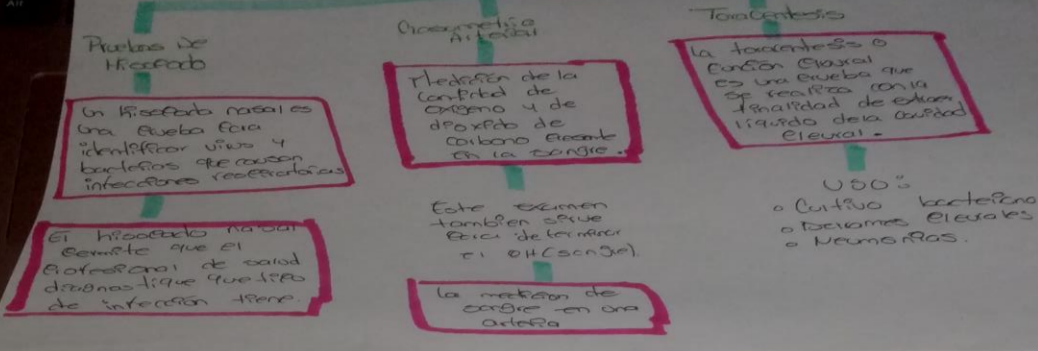 Pruebas de
Hisopado
Un hisopado nasal es
una prueba para
identificar virus y
bacterias que causan
infecciones respiratorias
El hisopado nasal
permite que el
profesional de salud
diagnostique que tipo
de infección tiene.
Gasometría
Arterial
Medición de la
cantidad de
oxígeno y de
dioxido de
carbono presente
en la sangre.
Este examen
tambien sirve
para determinar
el PH (sangre).
La medicion de
sangre en una
arteria
Toracentesis
La toracentesis o
punción pleural
es una prueba que
se realiza con la
finalidad de extraer
líquido de la cavidad
pleural.
USO:
• Cultivo bacteriano
• Derrames pleurales
• Neumonías.